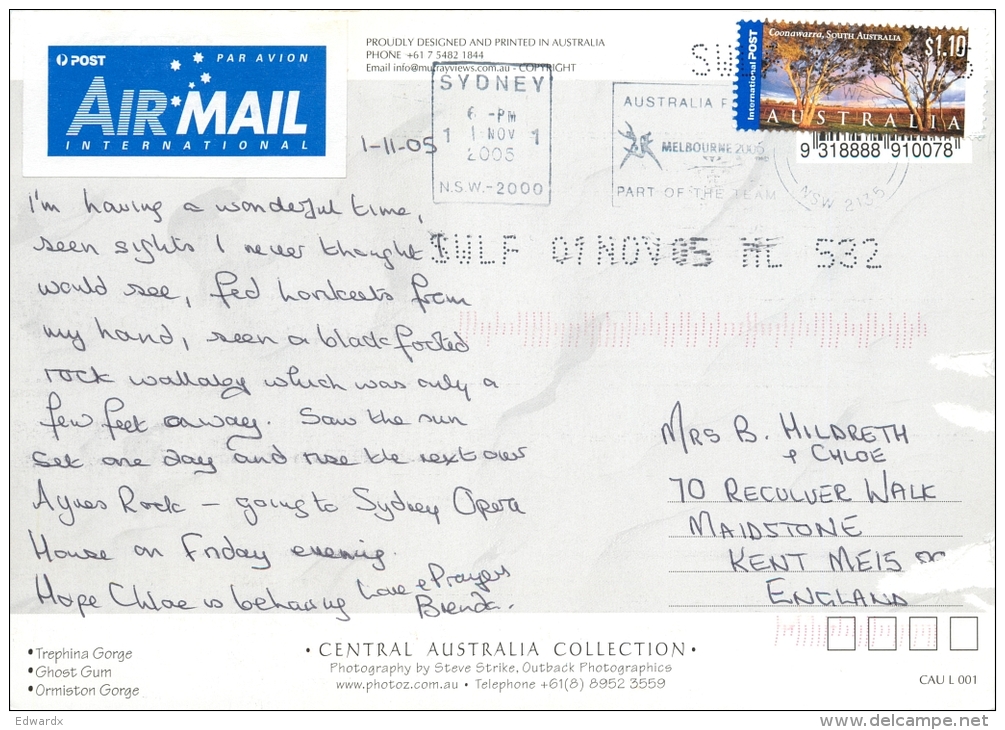 POST
PAR AVION
AIR MAIL
INTERNATIONAL
PROUDLY DESIGNED AND PRINTED IN AUSTRALIA
PHONE +61 7 5482 1844
Email info@murrayviews.com.au - COPYRIGHT
SYDNEY
6 -PM
1 1 NOV 1
2005
N.S.W.-2000
AUSTRALIA
MELBOURNE 2006
PART OF THE TEAM
Coonawarra, South Australia
$1.10
International POST
AUSTRALIA
9 318888 910078
NSW 2135
1-11-05
I'm having a wonderful time,
seen sights I never thought
would see, fed lorikeets from
my hand, seen a black footed
rock wallaby which was only a
few feet away. Saw the sun
set one day and rise the next over
Ayres Rock – going to Sydney Opera
House on Friday evening.
Hope Chloe is behaving
Love & Prayers
Brenda.
01 NOV 05 ML 532
MRS B. HILDRETH
& CHLOE
70 RECULVER WALK
MAIDSTONE
KENT ME15
ENGLAND
• Trephina Gorge
• Ghost Gum
• Ormiston Gorge
• CENTRAL AUSTRALIA COLLECTION •
Photography by Steve Strike, Outback Photographics
www.photoz.com.au • Telephone +61(8) 8952 3559
CAU L 001
Edwardx
www.delcampe.net